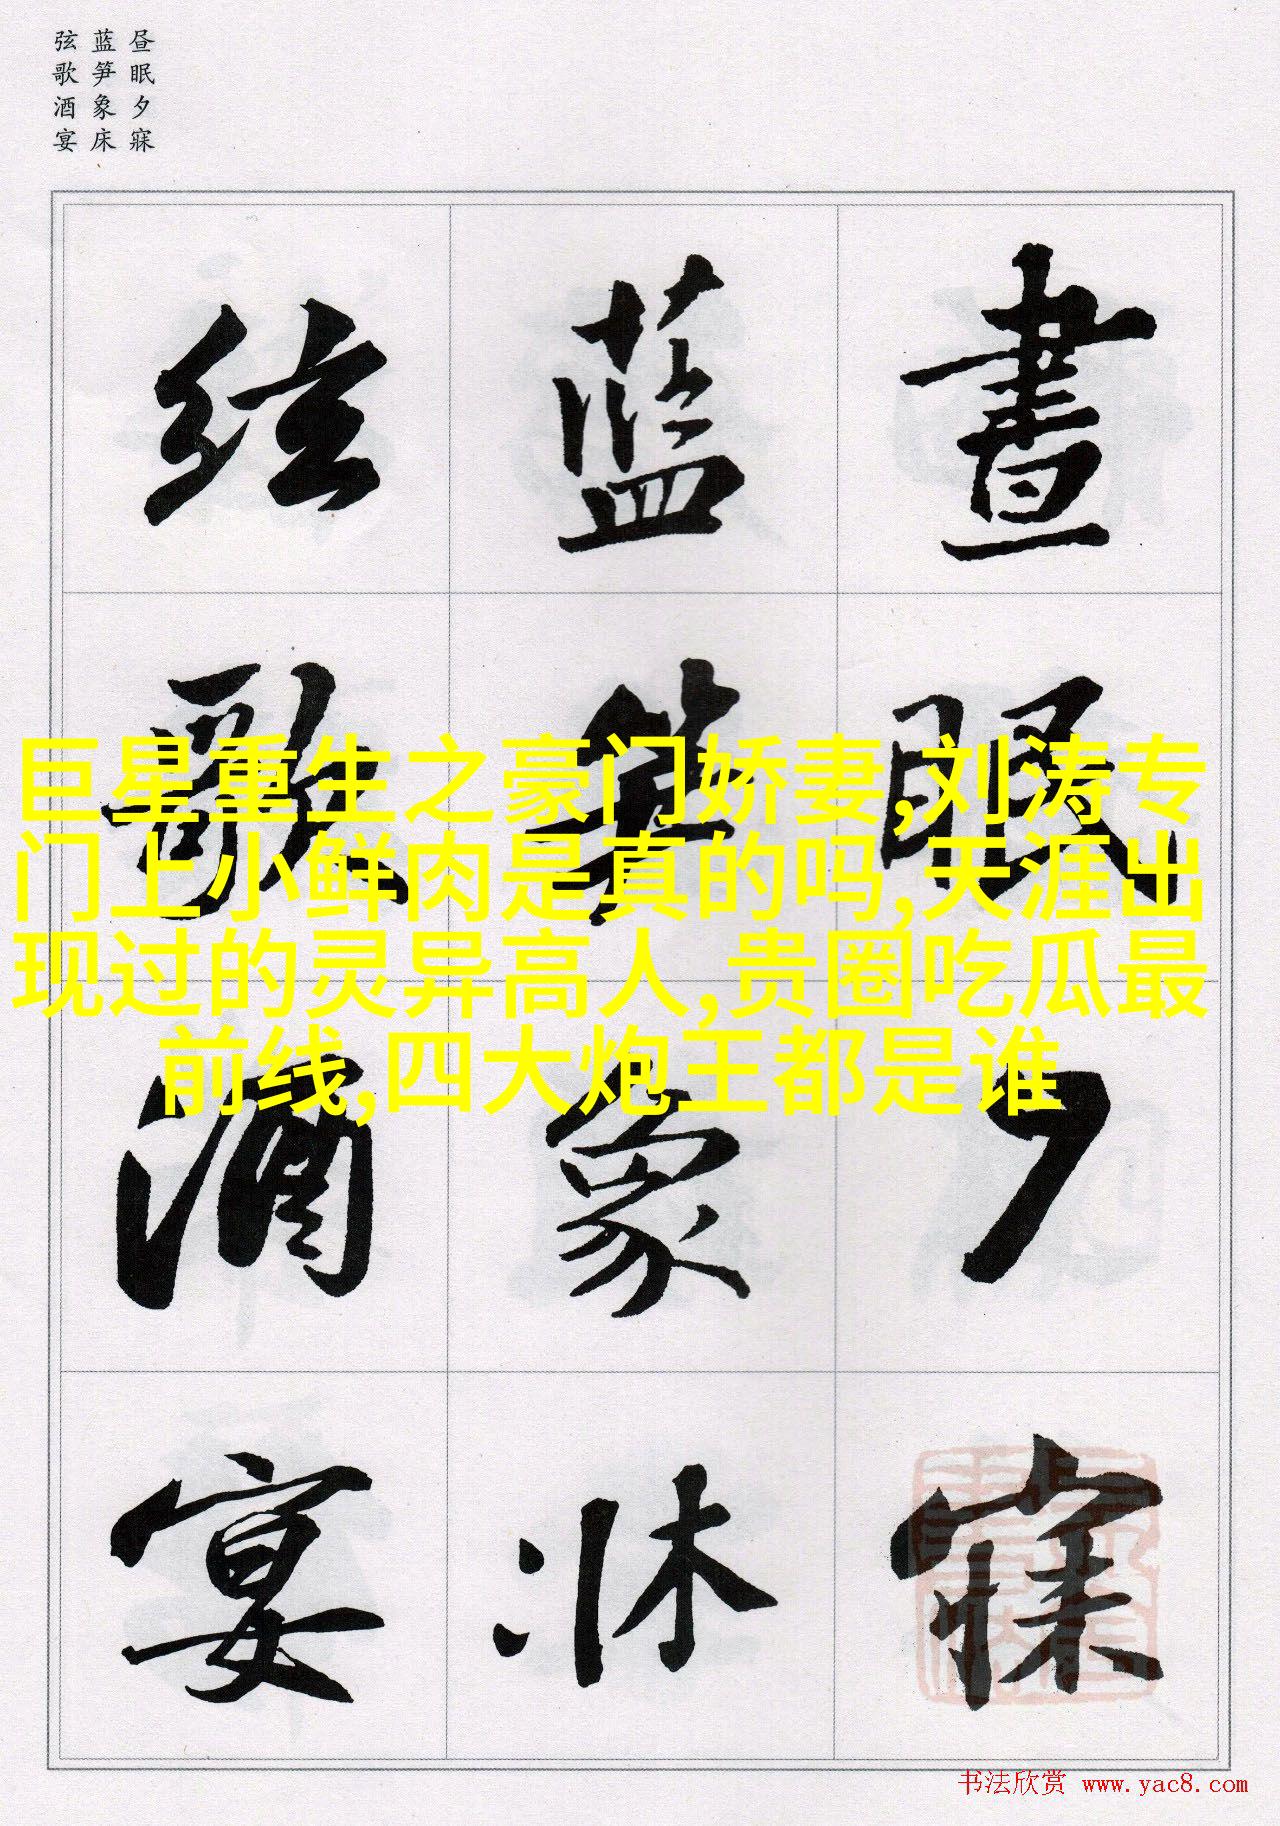 昼眠夕寐
蓝笋象床
弦歌酒宴
晝眠夕寐
藍笋象牀
弦歌酒宴
巨星重生之豪门娇妻,刘涛专
门上小鲜肉是真的吗,天涯出
现过的灵异高人,贵圈吃瓜最
前线,四大炮王都是谁
书法欣赏 www.yac8.com